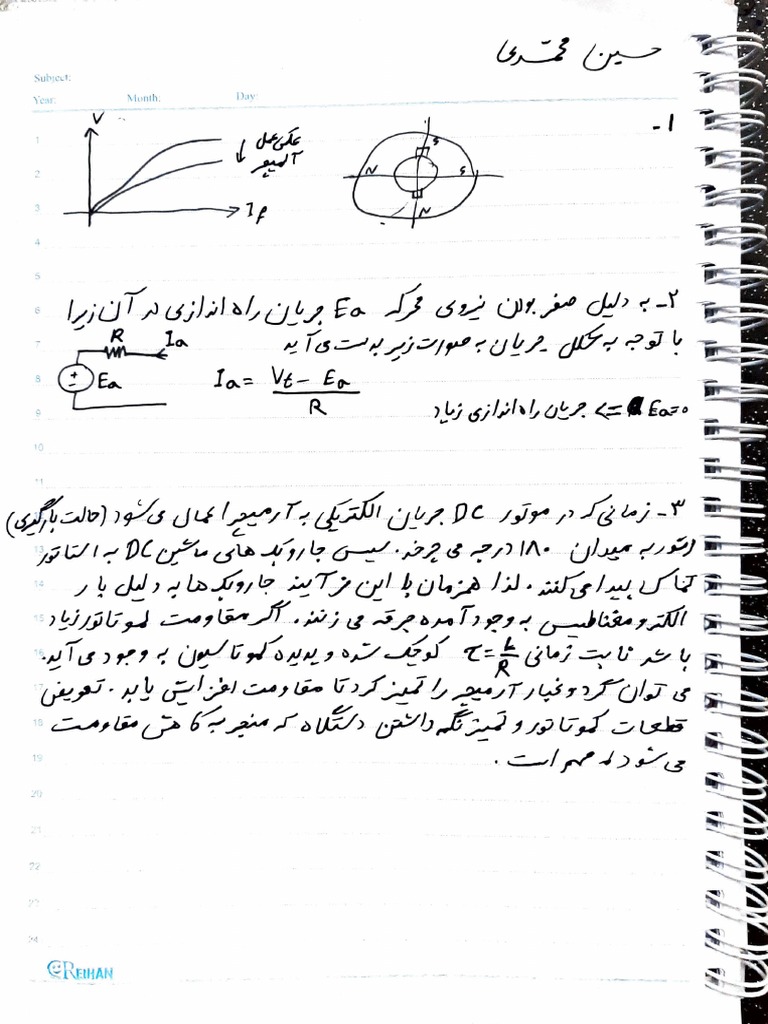 حسین محمدی
Subject:
Year: Month: Day:
1-
V
عکس العمل
آرمیچر
If
N S
S
N
2- به دلیل صفر بودن نیروی محرکه Ea جریان راه اندازی در آن زیرا
با توجه به شکل جریان به صورت زیر بدست می آید
R Ia
Ea
Ia = Vt - Ea / R
Ea=0 => جریان راه اندازی زیاد
3- زمانی که در موتور DC جریان الکتریکی به آرمیچر اعمال می شود (حالت بارگیری)
روتور به میدان 180 درجه می چرخد. سپس جاروبک های ماشین DC به استاتور
تماس پیدا می کنند. لذا همزمان با این فرآیند جاروبک ها به دلیل بار
الکترومغناطیسی به وجود آمده جرقه می زنند. اگر مقاومت کموتاتور زیاد
باشد ثابت زمانی τ = L/R کوچک شده و پدیده کموتاسیون به وجود می آید.
می توان گرد و غبار آرمیچر را تمیز کرد تا مقاومت افزایش یابد. تعویض
قطعات کموتاتور و تمیز نگه داشتن دستگاه که منجر به کاهش مقاومت
می شود مهم است.
1
2
3
4
5
6
7
8
9
10
11
13
14
15
16
17
18
19
20
21
22
23
24
REIHAN